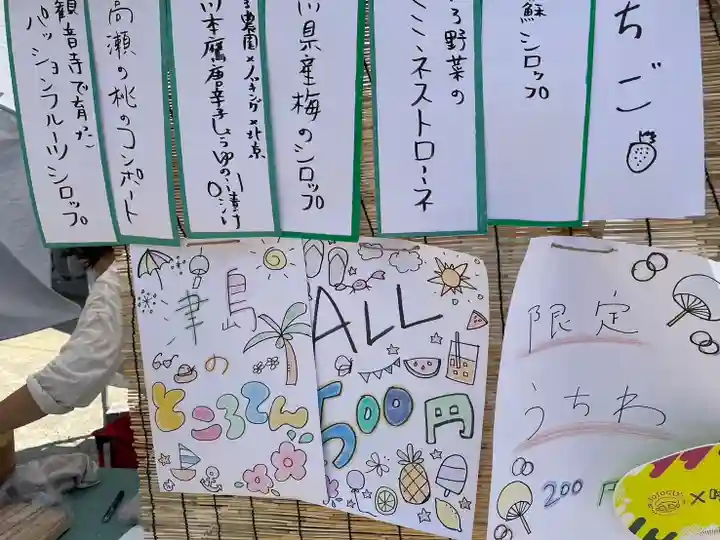 ちご
蘇シロップ
ろ野菜の
ミネストローネ
川県産梅のシロップ
農園×
川本鷹唐辛子しょうゆの
漬け
高瀬の桃のコンポート
観音寺で育った
パッションフルーツシロップ
津島
の
ところてん
ALL
500円
限定
うちわ
200円
×